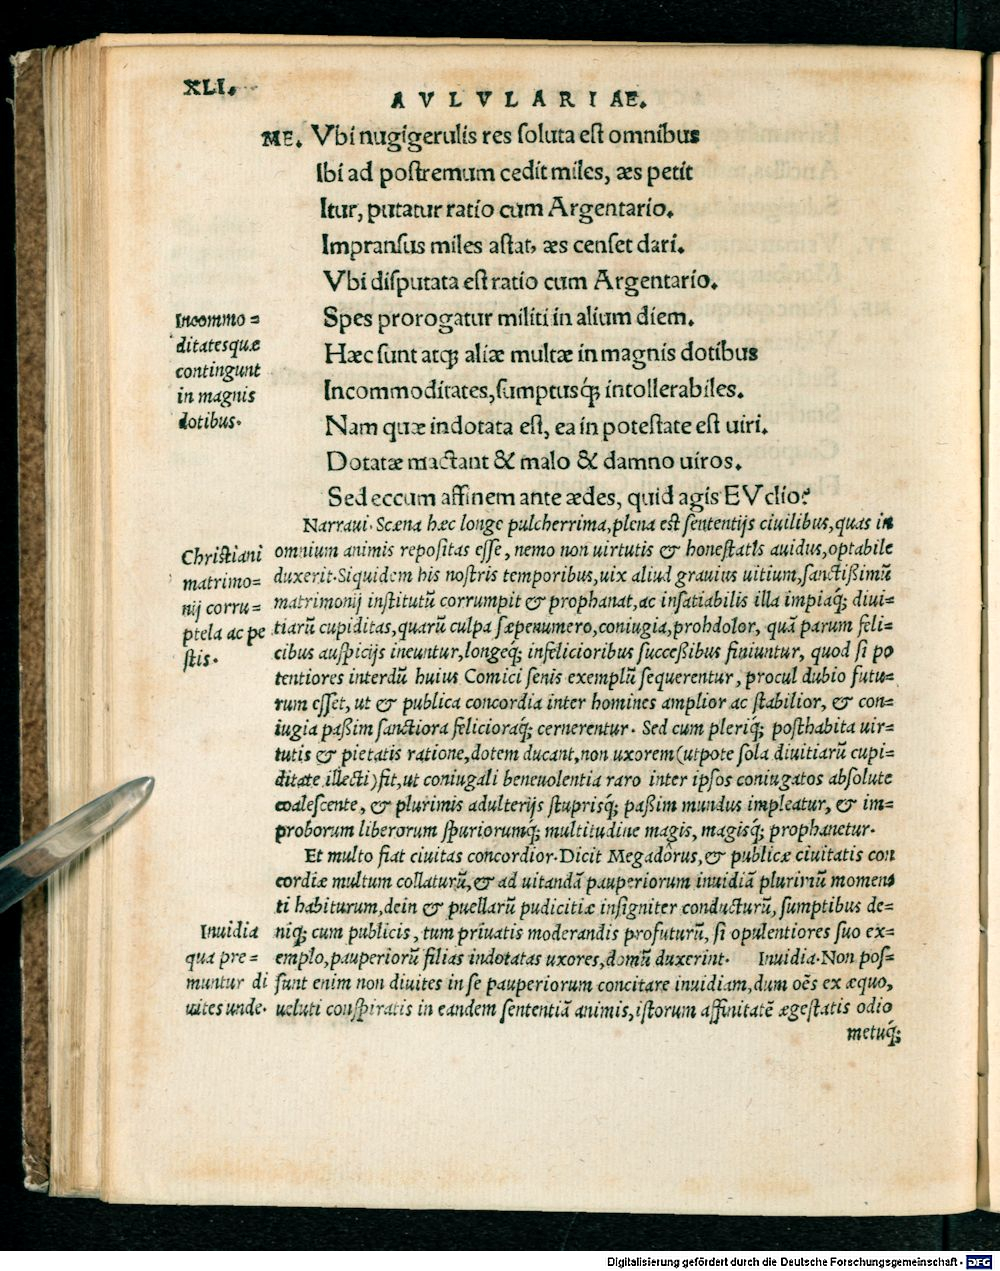 XLI.
AVLVLARIAE.
ME. Vbi nugigerulis res soluta est omnibus
Ibi ad postremum cedit miles, æs petit
Itur, putatur ratio cum Argentario.
Impransus miles astat, æs censet dari.
Vbi disputata est ratio cum Argentario.
Spes prorogatur militi in alium diem.
Hæc sunt atq; aliæ multæ in magnis dotibus
Incommoditates, sumptusq́; intollerabiles.
Nam quæ indotata est, ea in potestate est uiri.
Dotatæ mactant & malo & damno uiros.
Sed eccum affinem ante ædes, quid agis EVclio?
Incommo=
ditates quæ
contingunt
in magnis
dotibus.
Narraui. Scæna hæc longe pulcherrima, plena est sententijs ciuilibus, quas in
omnium animis repositas esse, nemo non uirtutis & honestatis auidus, optabile
duxerit. Siquidem his nostris temporibus, uix aliud grauius uitium, sanctißimū
matrimonij institutū corrumpit & prophanat, ac insatiabilis illa impiaq́; diui=
tiarū cupiditas, quarū culpa sæpenumero, coniugia, prohdolor, quā parum feli=
cibus auspicijs ineuntur, longeq́; infelicioribus succeßibus finiuntur, quod si po
tentiores interdū huius Comici senis exemplū sequerentur, procul dubio futu=
rum esset, ut & publica concordia inter homines amplior ac stabilior, & con=
iugia paßim sanctiora felicioraq́; cernerentur. Sed cum pleriq́; posthabita uir=
tutis & pietatis ratione, dotem ducant, non uxorem (utpote sola diuitiarū cupi=
ditate illecti) fit, ut coniugali beneuolentia raro inter ipsos coniugatos absolute
coalescente, & plurimis adulterijs stuprisq́; paßim mundus impleatur, & im=
proborum liberorum spuriorumq́; multitudine magis, magisq́; prophanetur.
Christiani
matrimo=
nij corru=
ptela ac pe
stis.
Et multo fiat ciuitas concordior. Dicit Megadorus, & publicæ ciuitatis con
cordiæ multum collaturū, & ad uitandā pauperiorum inuidiā plurimū momen
ti habiturum, dein & puellarū pudicitiæ insigniter conducturū, sumptibus de=
niq; cum publicis, tum priuatis moderandis profuturū, si opulentiores suo ex=
emplo, pauperiorū filias indotatas uxores, domū duxerint. Inuidia. Non pos=
sunt enim non diuites in se pauperiorum concitare inuidiam, dum oēs ex æquo,
ueluti conspiratis in eandem sententiā animis, istorum affinitatē ægestatis odio
metuq́;
Inuidia
qua pre=
muntur di
uites unde.
Digitalisierung gefördert durch die Deutsche Forschungsgemeinschaft - DFG